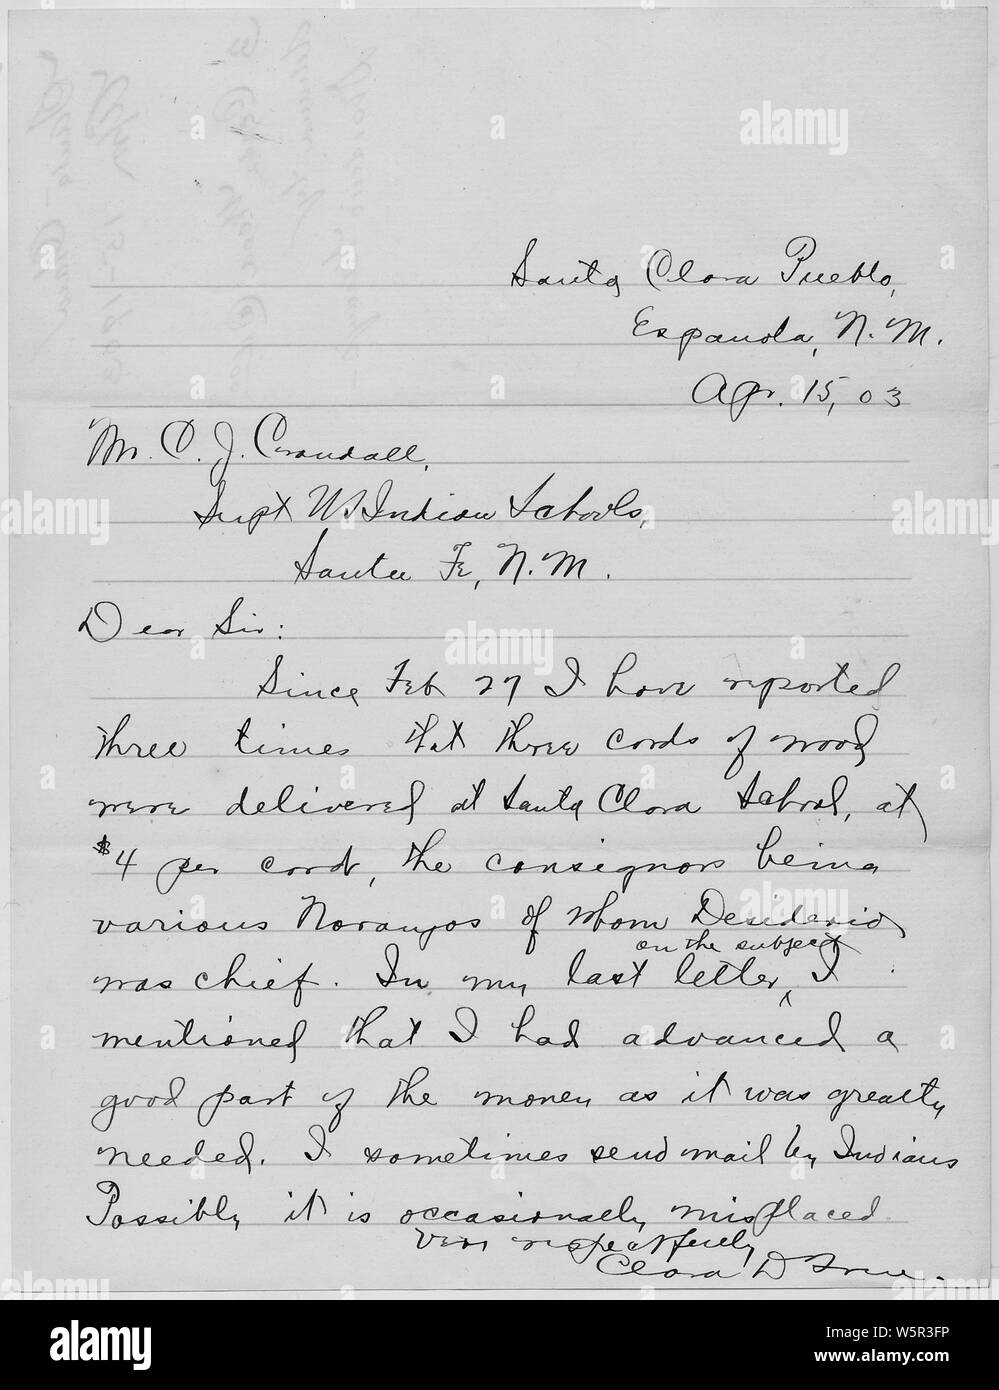 Santa Clara Pueblo,
Espanola, N. M.
Apr. 15, 03
Mr. C. J. Crandall,
Supt U.S. Indian Schools,
Santa Fe, N. M.
Dear Sir:
Since Feb 27 I have reported
three times that three cords of wood
were delivered at Santa Clara School, at
$4 per cord, the consignors being
various Naranjos of whom Desiderio
on the subject
was chief. In my last letter, I
mentioned that I had advanced a
good part of the money as it was greatly
needed. I sometimes send mail by Indians
Possibly it is occasionally misplaced.
Very respectfully,
Clara D True.
alamy
alamy
Image ID: W5R3FP
www.alamy.com